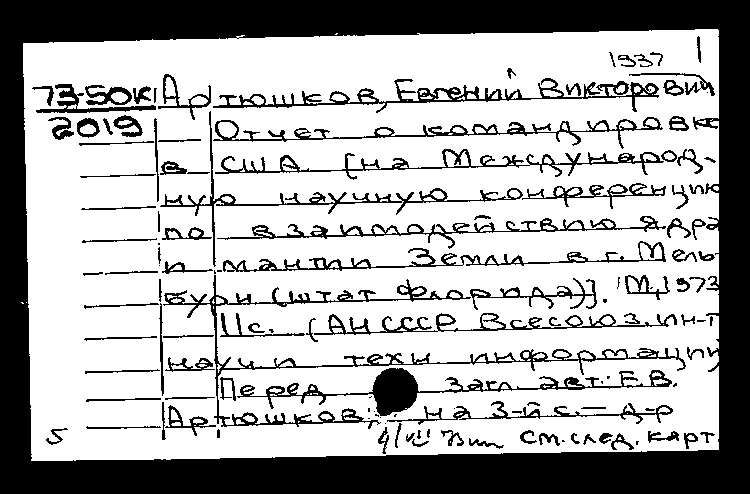 1937
73-50К Артюшков, Евгений Викторович
2019 Отчет о командировке
в США [на Международ-
ную научную конференцию
по взаимодействию ядра
и мантии Земли в г. Мель-
бурн (штат Флорида)]. М, 1973
11с. (АН СССР. Всесоюз. ин-т
науч и техн информации
Перед загл авт: Е.В.
Артюшков, на 3-й с. – д-р
5 см. след. карт.